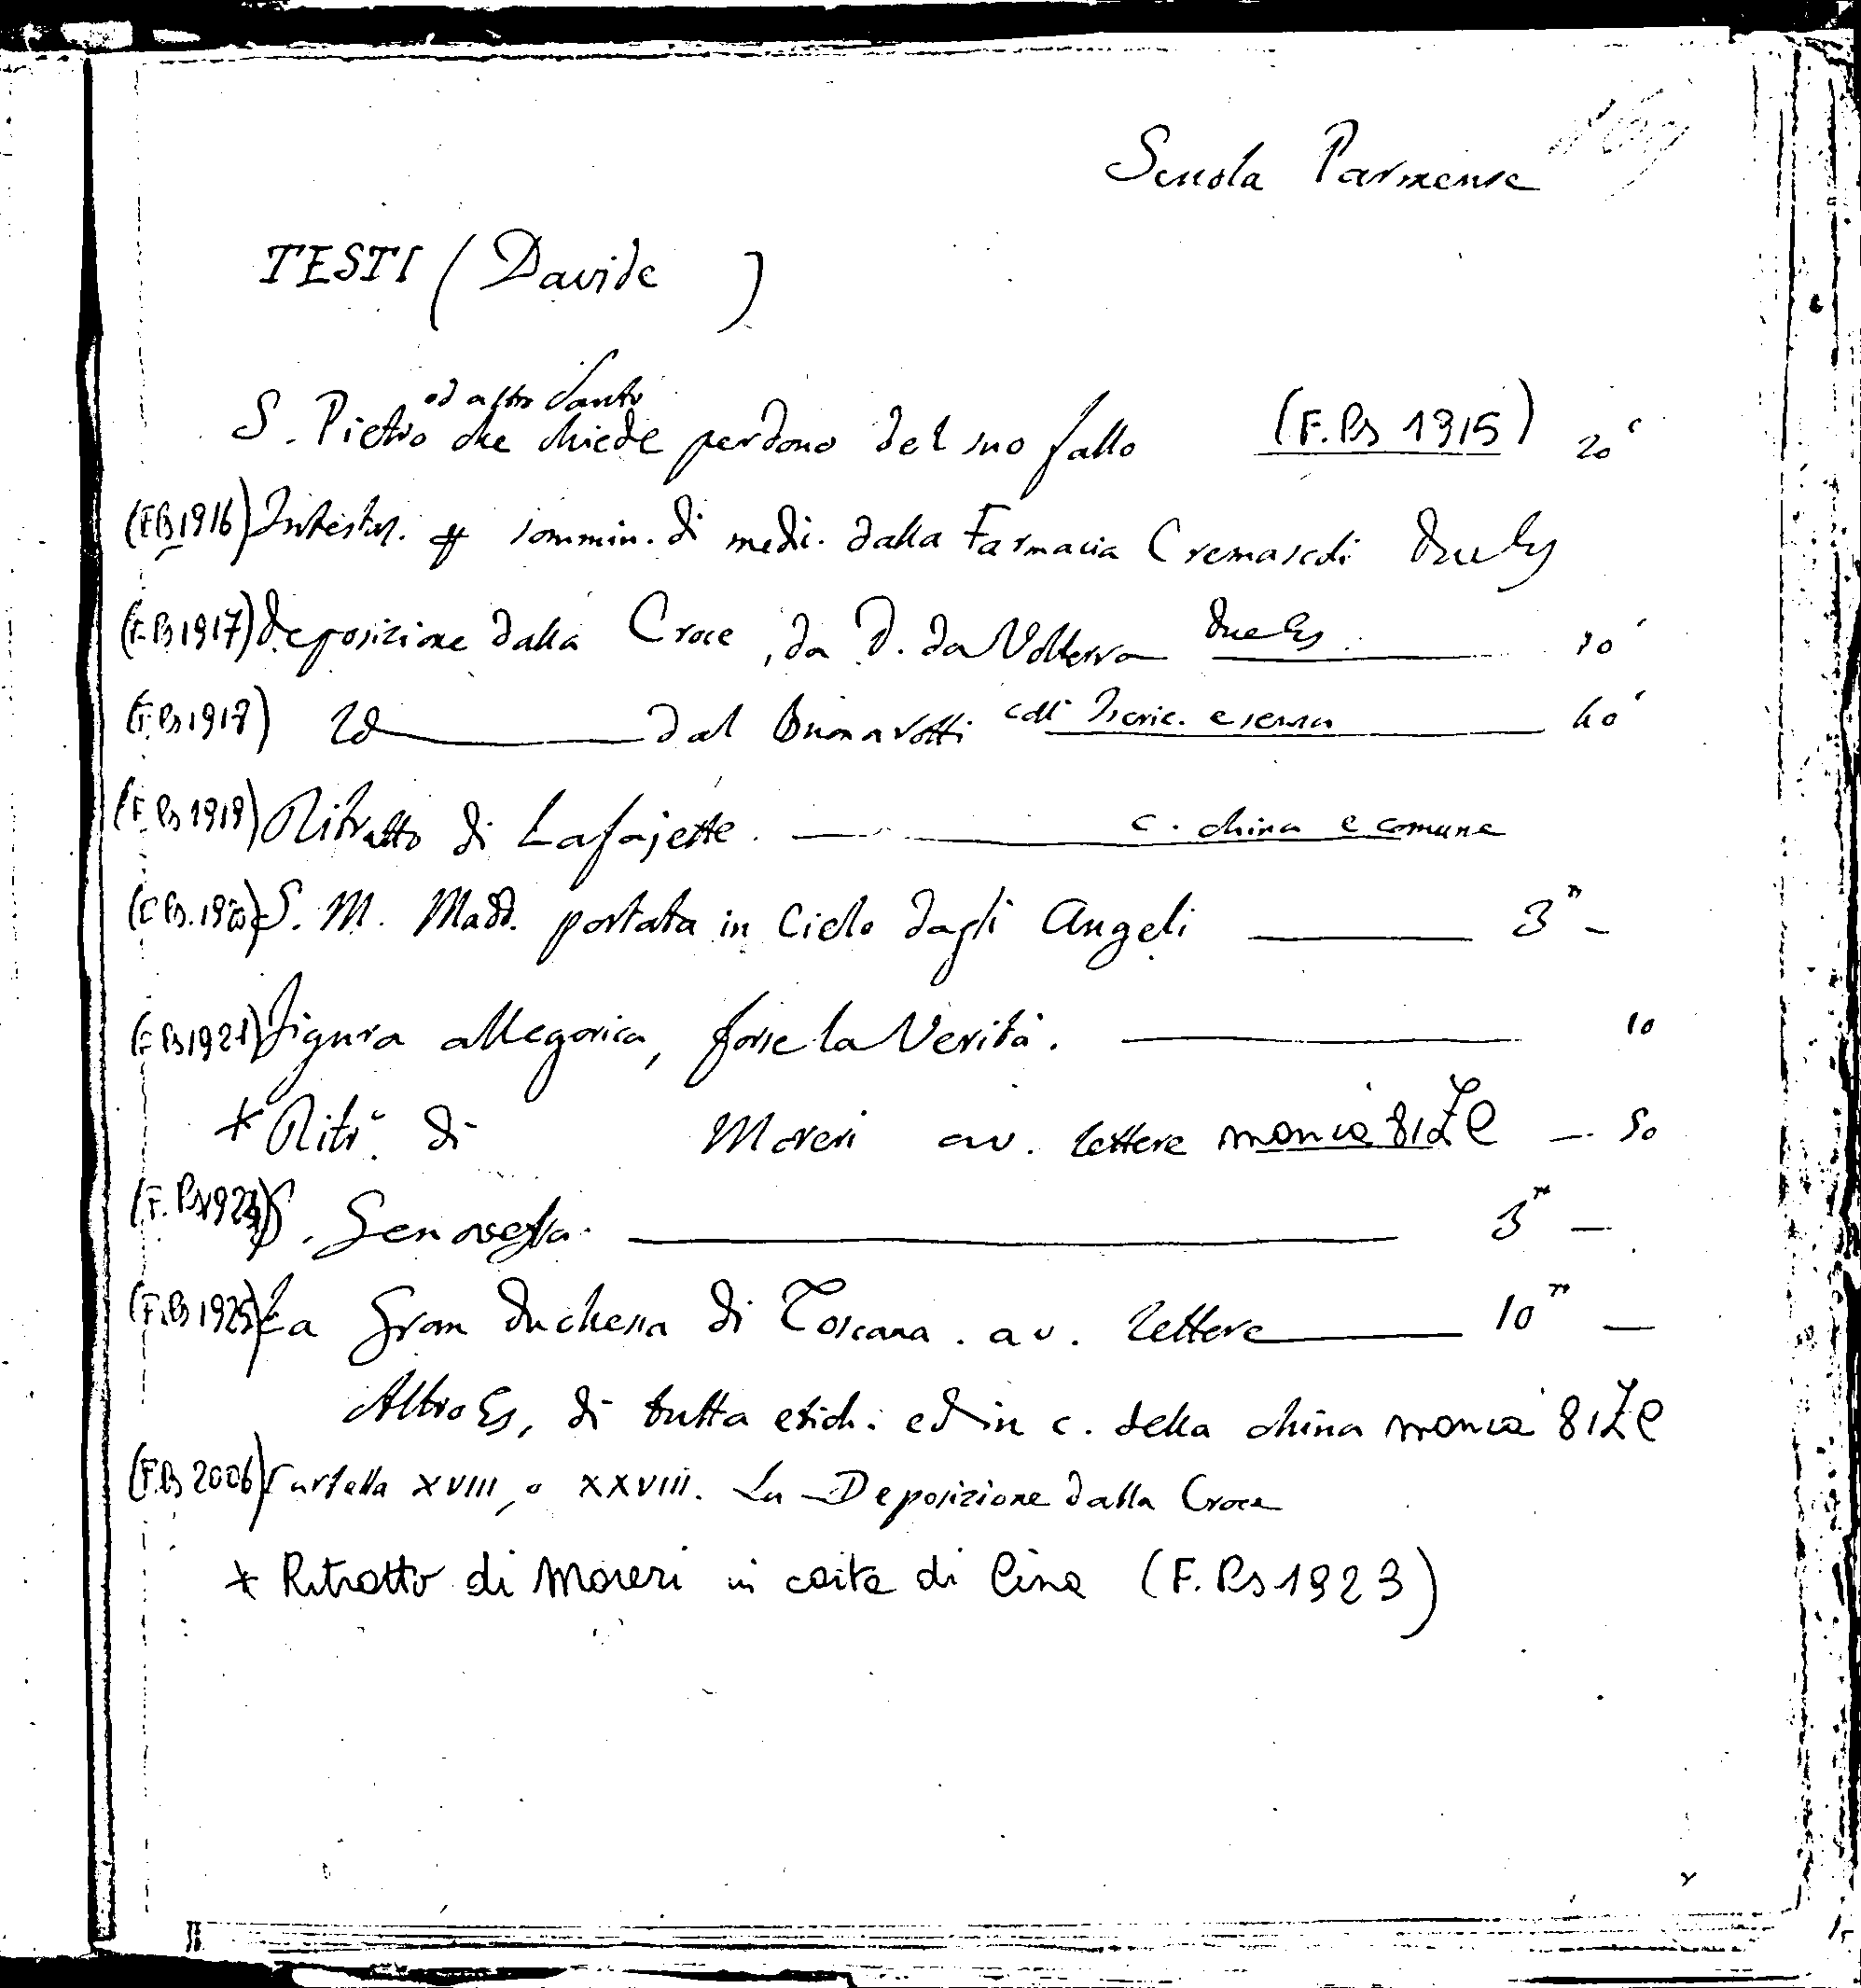 Scuola Parmense
TESTI (Davide )
ed altro Santo
S. Pietro che chiede perdono del suo fallo (F. Ps 1915) 20 c
(F.Ps 1916) Intestaz. sommin. di medic. dalla Farmacia Cremaschi due Es
(F.Ps 1917) Deposizione dalla Croce, da D. da Volterra due Es.
(F.Ps 1918) Id dal Buonarotti coll' Iscriz. e senza
(F.Ps 1919) Ritratto di Lafajette. c. china e comune
(F.Ps. 1920) S. M. Madd. portata in Cielo dagli Angeli 3 —
(F.Ps 1921) Figura allegorica, forse la Verità. 10
* Ritr. di Moreri av. lettere manca 50
S. Genoveffa. 3 —
(F.Ps 1925) La Gran Duchessa di Toscana. av. lettere 10 —
Altro Es, di tutta etich. ed in c. della china manca
(F.Ps 2006) Cartella XVIII, o XXVIII. La Deposizione dalla Croce
* Ritratto di Moreri in carta di Cina (F. Ps 1923)